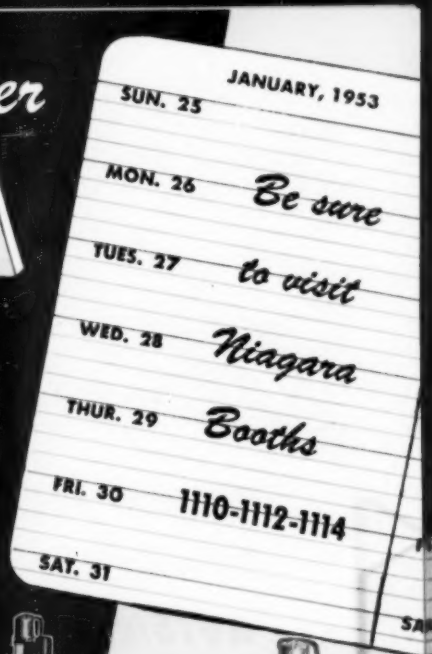 er
JANUARY, 1953
SUN. 25
MON. 26 Be sure
TUES. 27 to visit
WED. 28 Niagara
THUR. 29 Booths
FRI. 30 1110-1112-1114
SAT. 31